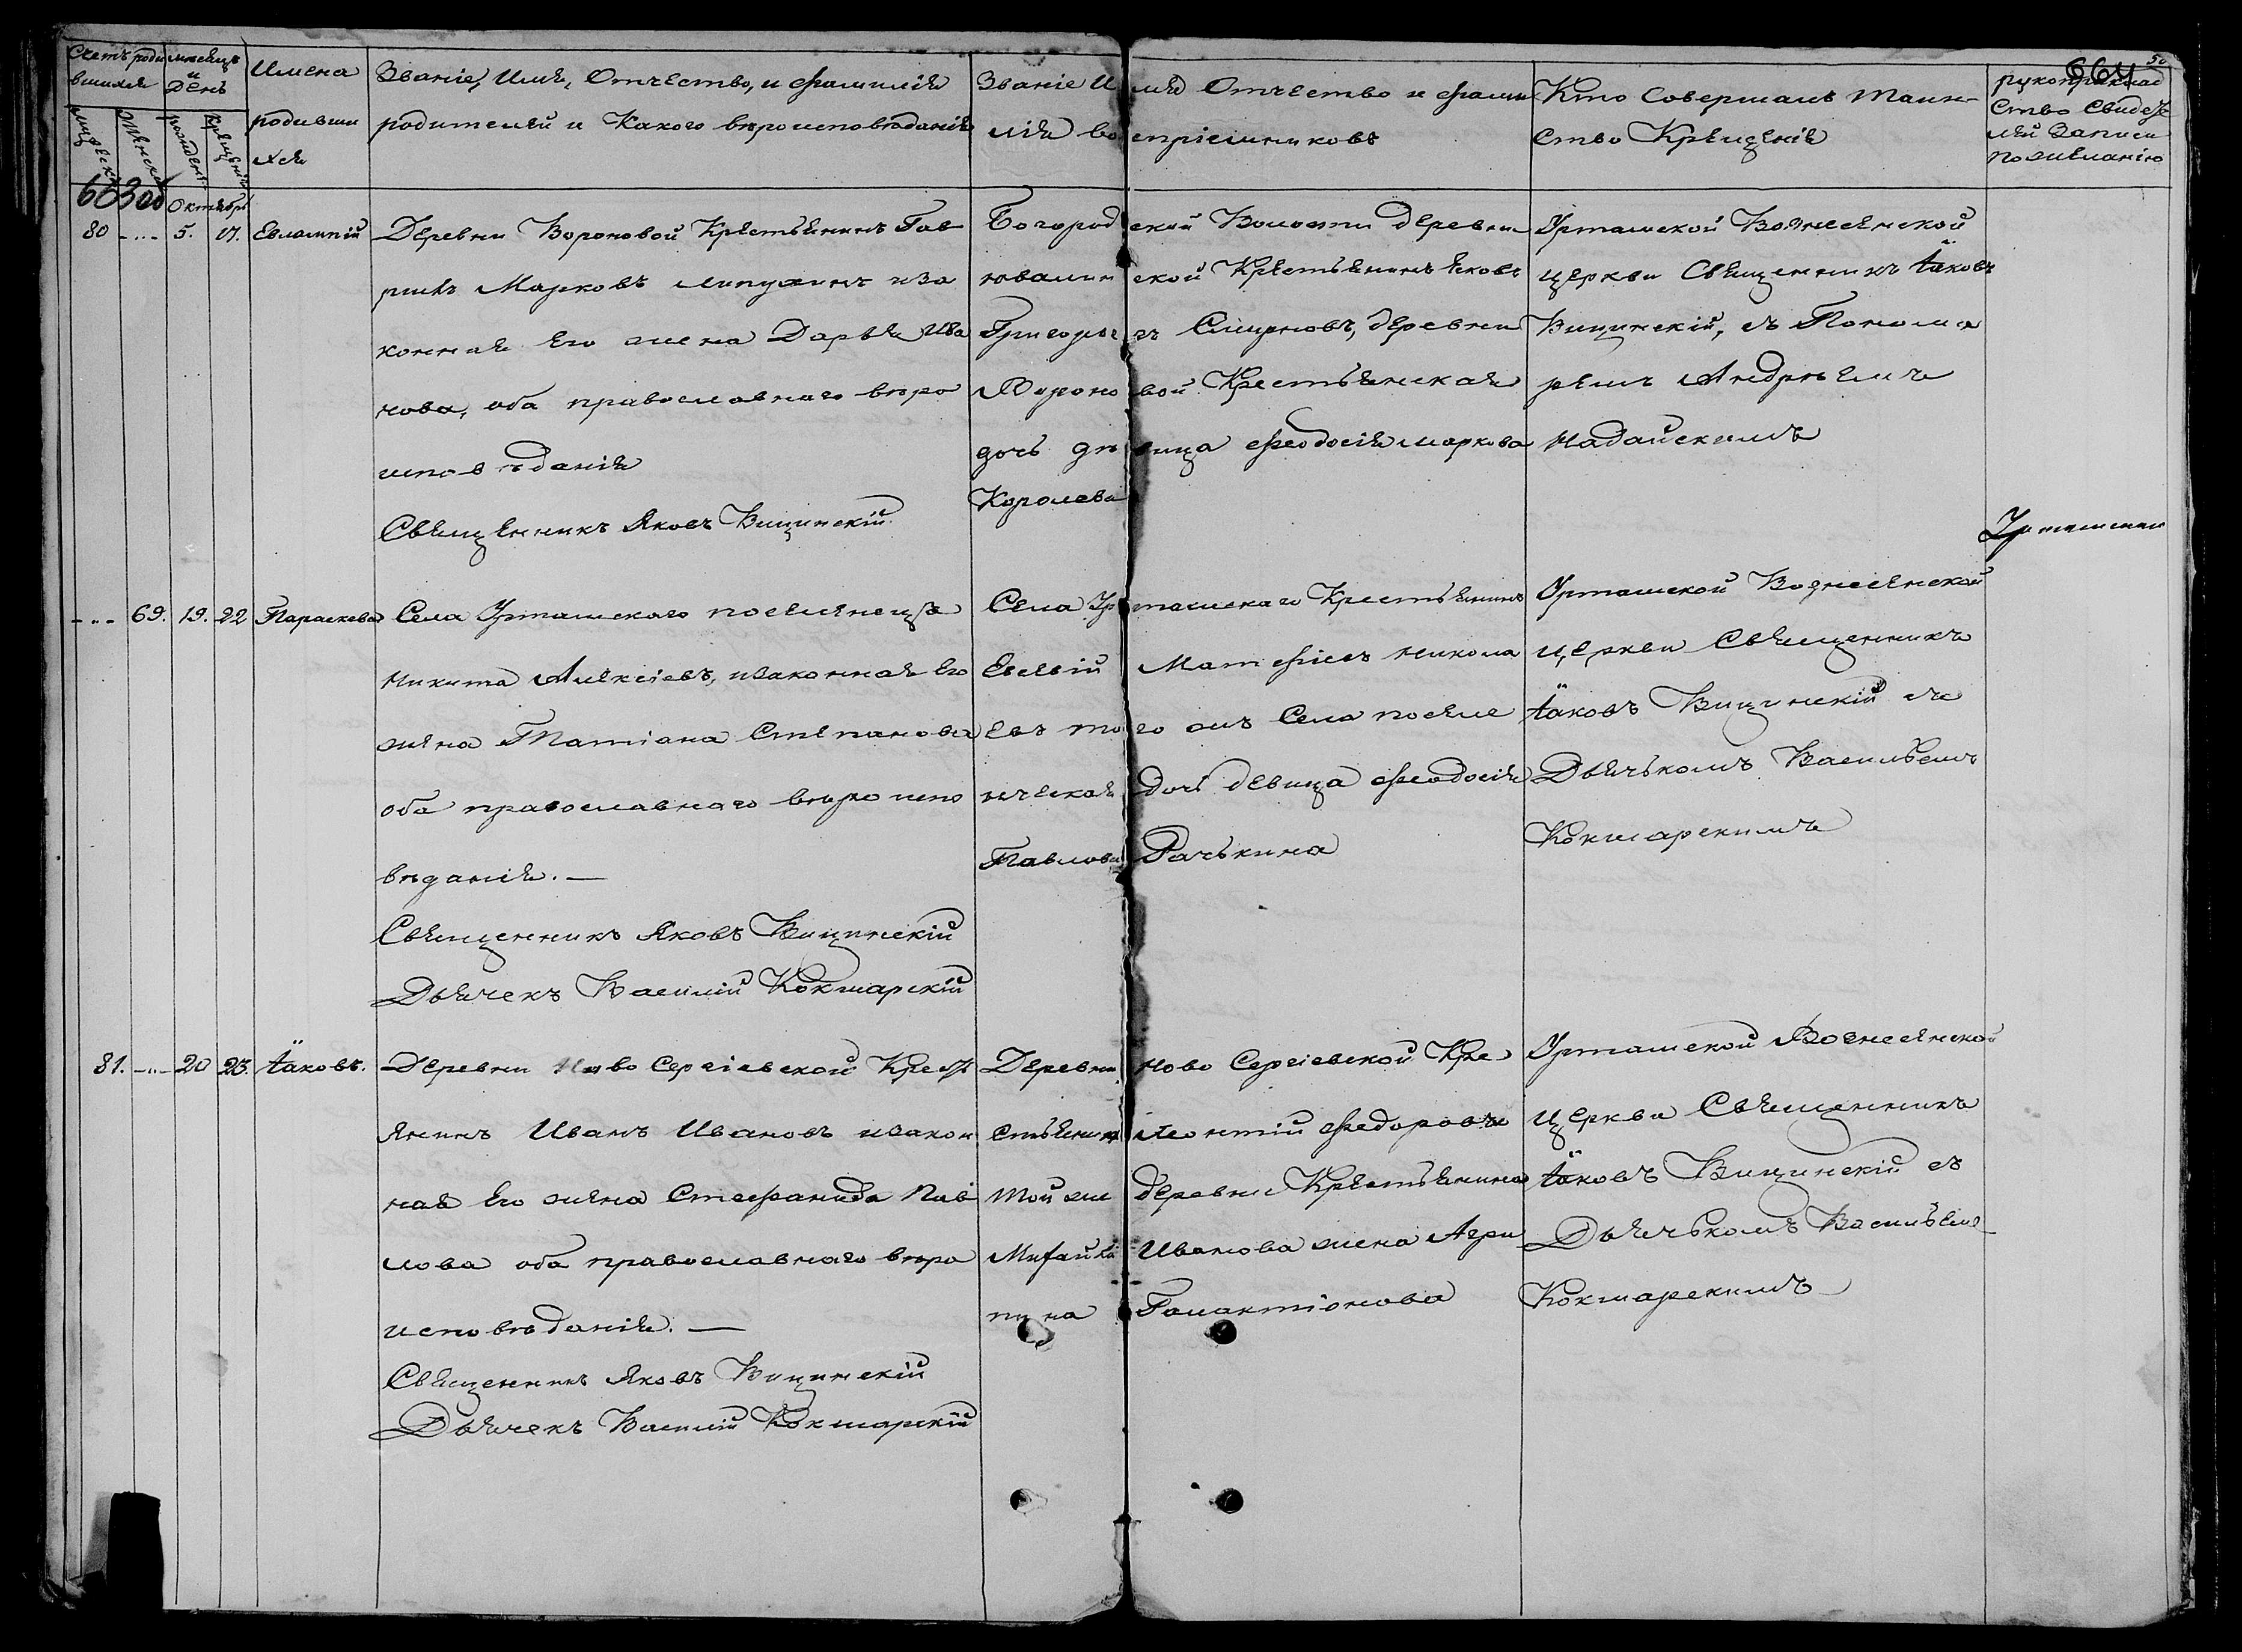 Счетъ роди
вшихся
мужеска
женска
мѣсяцъ
и
День
рожденія
крещенія
Имена
родивши
хся
Званіе, Имя, Отчество, и фамилія
родителей и Какого вѣроисповѣданія
Званіе Имя Отчество и фами
лія воспріемниковъ
Кто Совершалъ таин-
ство Крещенія
664
50
рукоприклад
ство Свидѣте
лей Записи
по желанію
663об
Октябрь
80 -..- 5. 17. Евлампій
Деревни Вороновой Крестьянинъ Гав
рилъ Марковъ Липухинъ иза
конная Его жена Дарья Ива
нова, оба православнаго вѣро
исповѣданія
Священникъ Яковъ Вицинскій
Богородской Волости деревни
ской Крестьянинъ Яковъ
Григорьевъ Смирновъ, деревни
Вороновой Крестьянская
дочь дѣвица Феодосія Маркова
Королева
Урташской Вознесенской
церкви Священникъ Іаковъ
Вицинскій, съ Понома
ремъ Андрѣемъ
Надайскимъ
-..- 69. 19. 22 Параскева
Села Урташскаго поселенецъ
Никита Алексіевъ, изаконная Его
жена Татіана Степанова
оба православнаго вѣро испо
вѣданія. —
Священникъ Яковъ Вицинскій
Дьячекъ Василій Кокшарскій
Села Урташскаго Крестьянинъ
Евсевій Матфіевъ Никола
евъ того жъ Села поселе
нческая дочь девица Феодосія
Павлова Рачькина
Урташской Вознесенской
церкви Священникъ
Іаковъ Вицинскій съ
Дьячькомъ Васильемъ
Кокшарскимъ
81. -..- 20 23. Іаковъ.
Деревни Ново Сергіевской Крест
янинъ Иванъ Ивановъ изакон
ная Его жена Стефанида Пав
лова оба православнаго вѣро
исповѣданія. —
Священникъ Яковъ Вицинскій
Дьячекъ Василій Кокшарскій
Деревни Ново Сергіевской Кре
стьянинъ Леонтій Федоровъ
той же деревни Крестьянина
Михайла Иванова жена Агри
пина Галактіонова
Урташской Вознесенской
церкви Священникъ
Іаковъ Вицинскій съ
Дьячькомъ Васильемъ
Кокшарскимъ